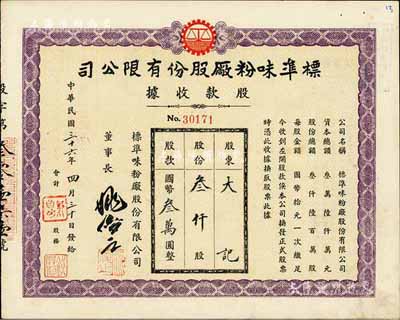 標準味粉廠股份有限公司
股款收據
No. 30171
公司名稱 標準味粉廠股份有限公司
資本總額 叁萬陸仟萬元
股份總額 叁仟陸百萬股
每股金額 國幣拾元一次繳足
今收到左開股款俟本公司換發正式股票
時憑此收據換取股票此據
股東 大記
股份 叁仟股
股款 國幣叁萬圓整
標準味粉廠股份有限公司
董事長
會計
股務
中華民國三十六年四月三十日發給